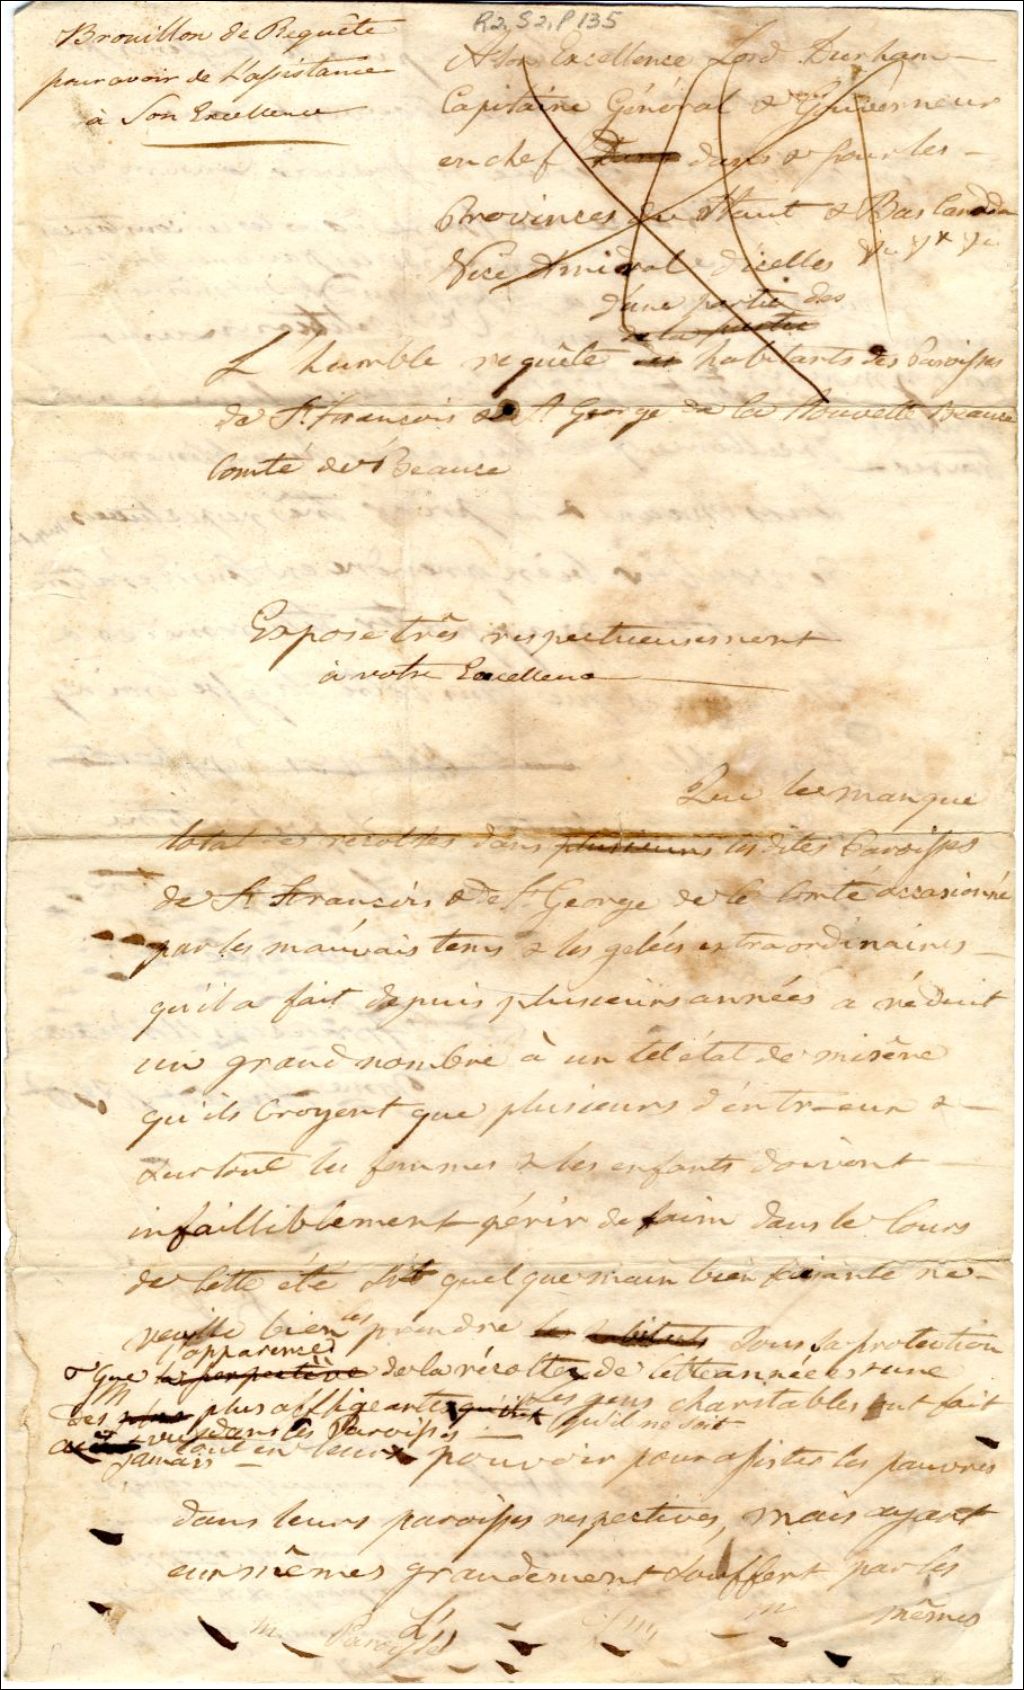 R2, S2, P135
Brouillon de Requête
pour avoir de L'assistance
à Son Excellence
A Son Excellence Lord Durham
Capitaine Général & Gouverneur
en chef dans dans & pour les
Provinces du Haut & Bas Canada
Vice Amiral d'icelles &c &c &c
d'une partie des
de la partie
L'humble requête des habitants des Paroisses
de St François & de St George de la Nouvelle Beauce
Comté de Beauce
Expose très respectueusement
à votre Excellence
Que le manque
total des récoltes dans plusieurs les dites Paroisses
de St François & de St George de le Comté occasionné
par les mauvais tems & les gelées extraordinaires
qu'il a fait depuis plusieurs années a réduit
un grand nombre à un tel état de misère
qu'ils Croyent que plusieurs d'entr-eux &
surtout les femmes & les enfants doivent
infailliblement périr de faim dans le Cours
de Cette été si quelque main bien faisante ne
veuille bien les prendre les habitants sous sa protection
l'apparence
& que la perspective de la récolte de cette année est une
des plus plus affligeantes qu'il Les gens charitables ont fait
vu dans les Paroisses qu'il ne soit
jamais tout en leur pouvoir pour assister les pauvres
dans leurs paroisses respectives, mais ayant
eux mêmes grandement souffert par les
mêmes
Paroisses